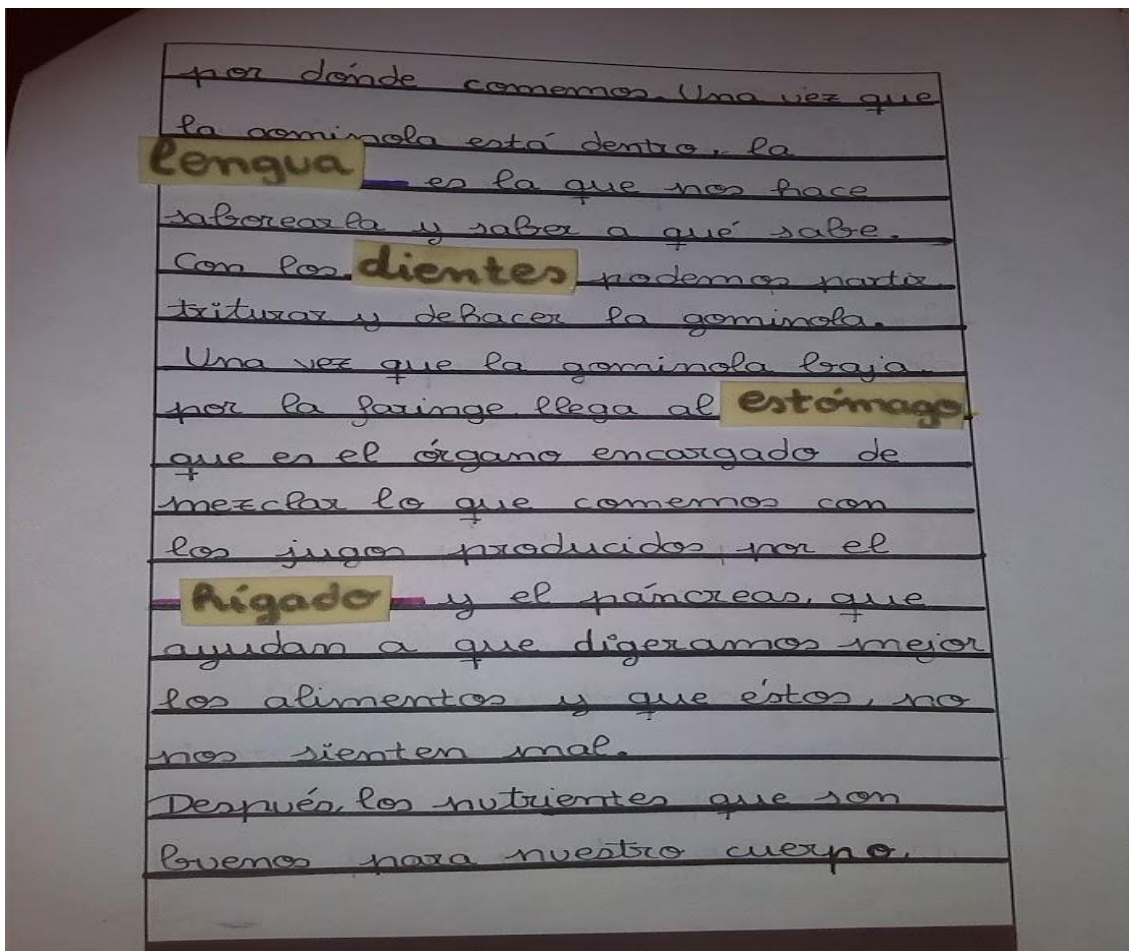 por dónde comemos. Una vez que
la gominola está dentro, la
lengua es la que nos hace
saborearla y saber a qué sabe.
Con los dientes podemos partir
triturar y dehacer la gominola.
Una vez que la gominola baja
por la faringe llega al estómago
que es el órgano encargado de
mezclar lo que comemos con
los jugos producidos por el
hígado y el páncreas, que
ayudan a que digeramos mejor
los alimentos y que éstos, no
nos sienten mal.
Después, los nutrientes que son
buenos para nuestro cuerpo,